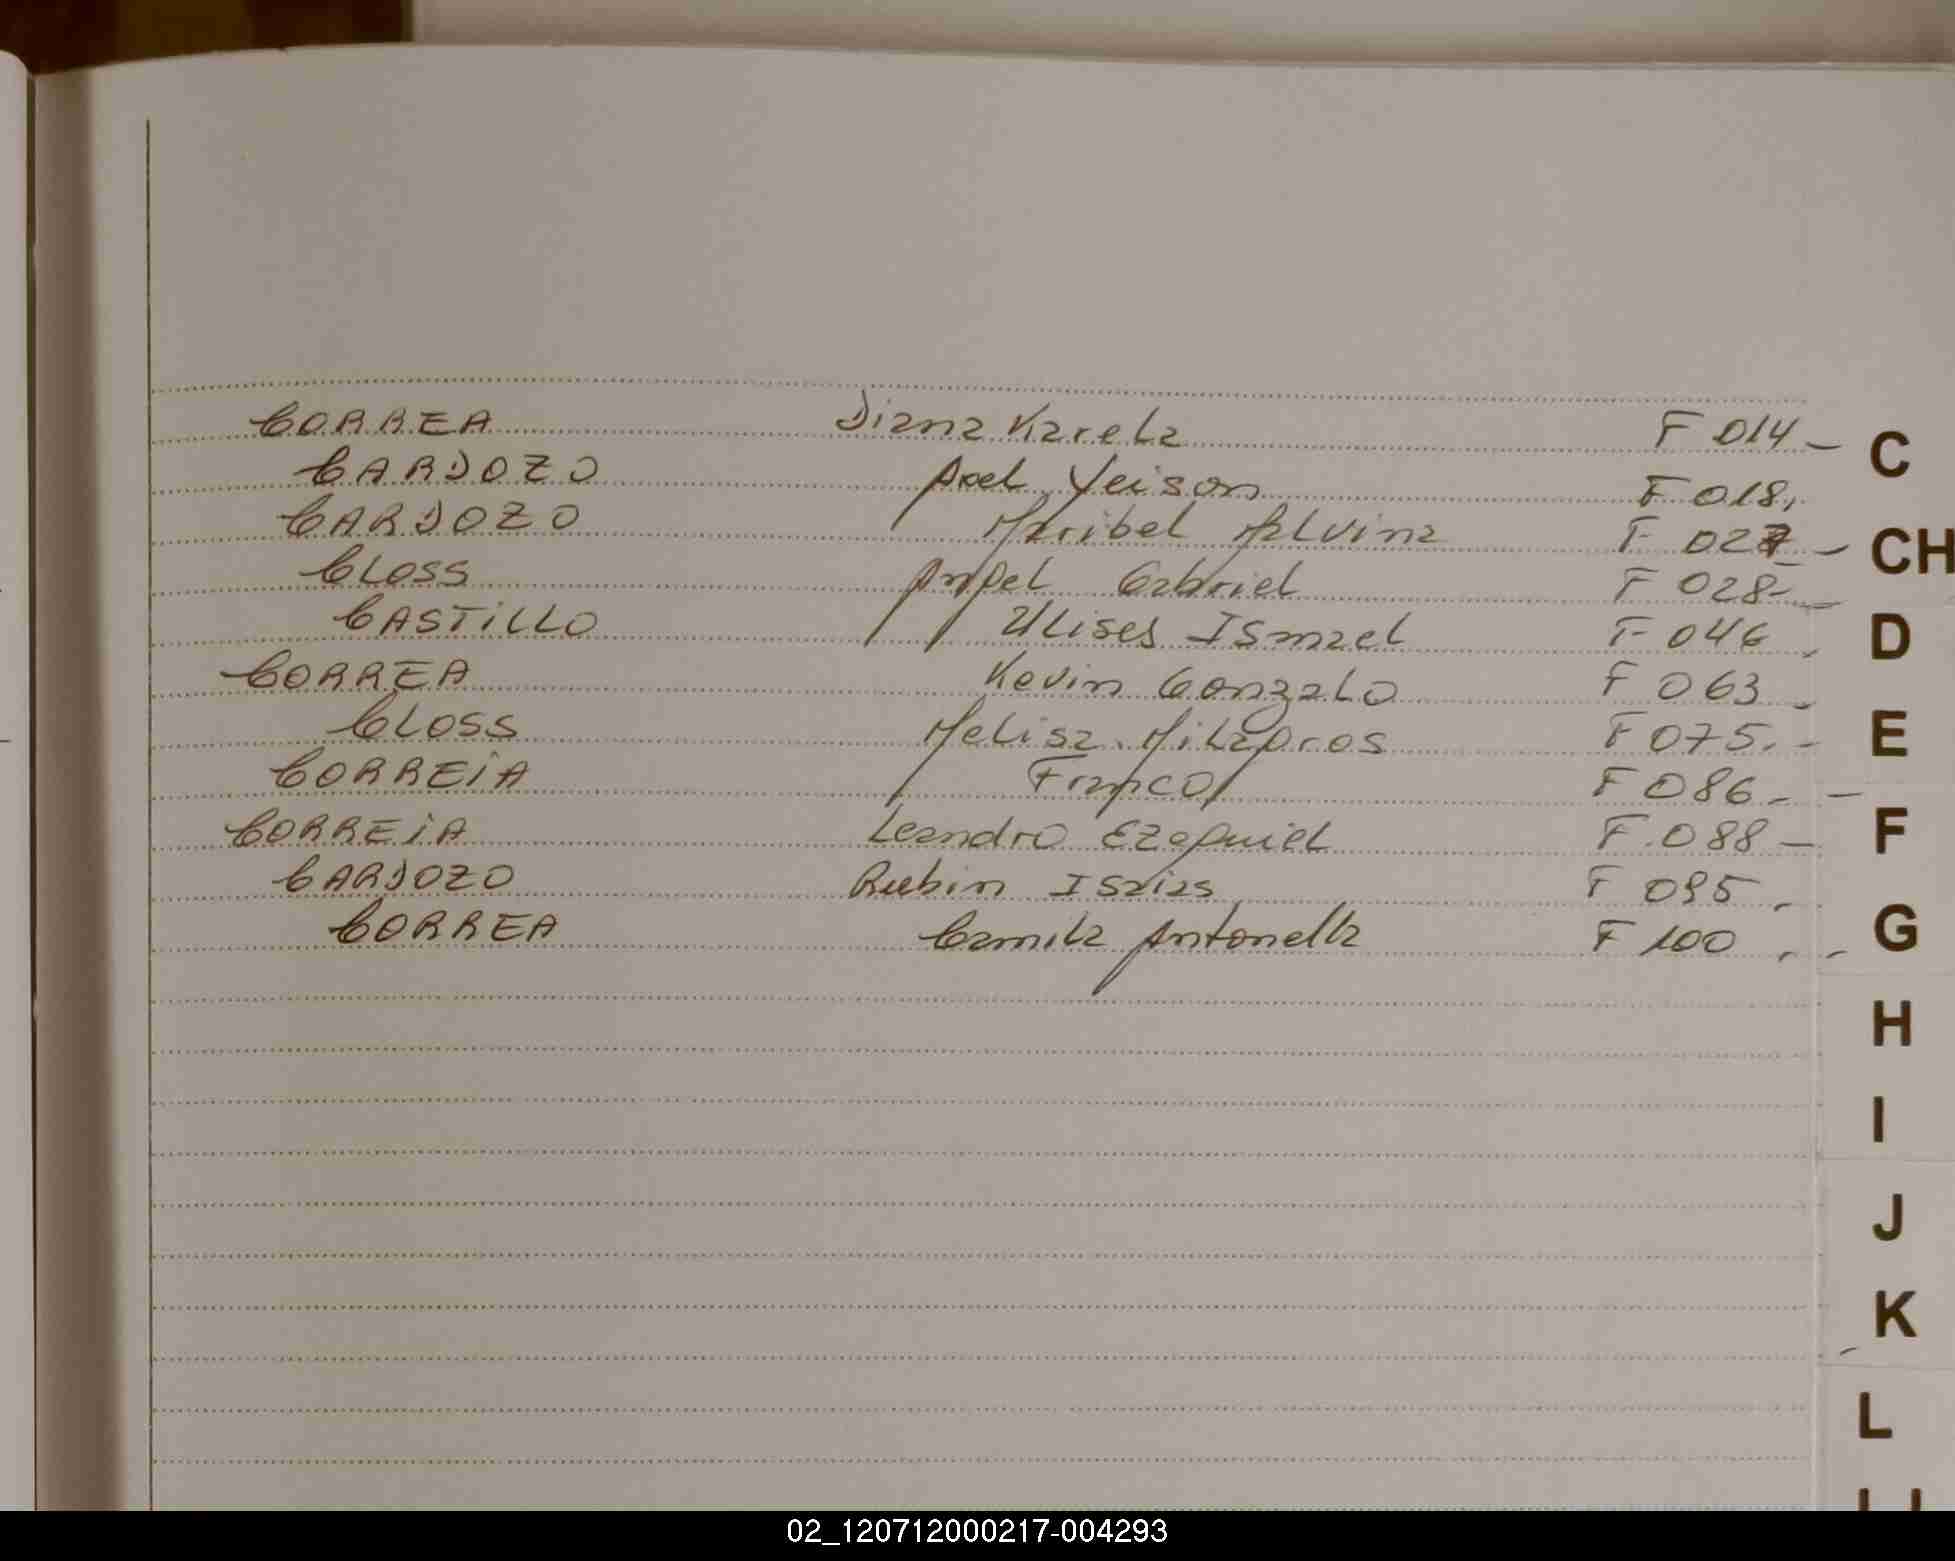 CORREA Diana Karela F 014 - C
CARDOZO Axel Yeison F 018.
CARDOZO Maribel Malvina F 027 - CH
CLOSS Angel Gabriel F 028 -
CASTILLO Ulises Ismael F 046 D
CORREA Kevin Gonzalo F 063
CLOSS Melisa Milagros F 075. - E
CORREIA Franco F 086. -
CORREIA Leandro Ezequiel F 088 - F
CARDOZO Rubin Isaias F 095
CORREA Camila Antonella F 100 G
H
I
J
K
L
02_120712000217-004293